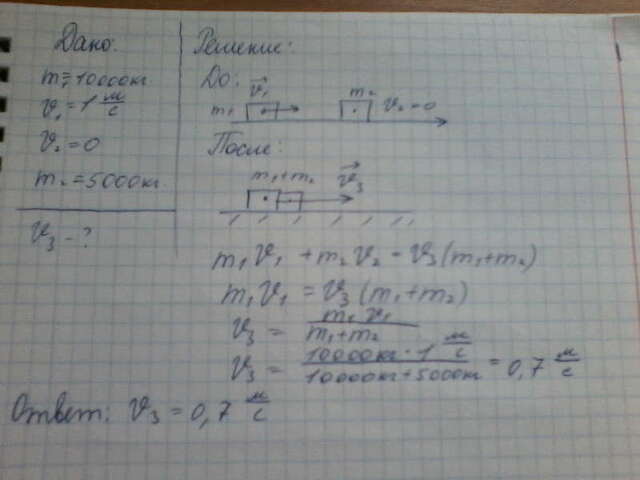 Дано:
m₁=10000кг
v₁=1 м/с
v₂=0
m₂=5000кг
v₃ - ?
Решение:
До:
v₁
m₁
m₂
v₂=0
После:
m₁+m₂
v₃
m₁v₁ + m₂v₂ = v₃(m₁+m₂)
m₁v₁ = v₃(m₁+m₂)
v₃ = m₁v₁ / m₁+m₂
v₃ = 10000кг · 1 м/с / 10000кг + 5000кг = 0,7 м/с
Ответ: v₃ = 0,7 м/с